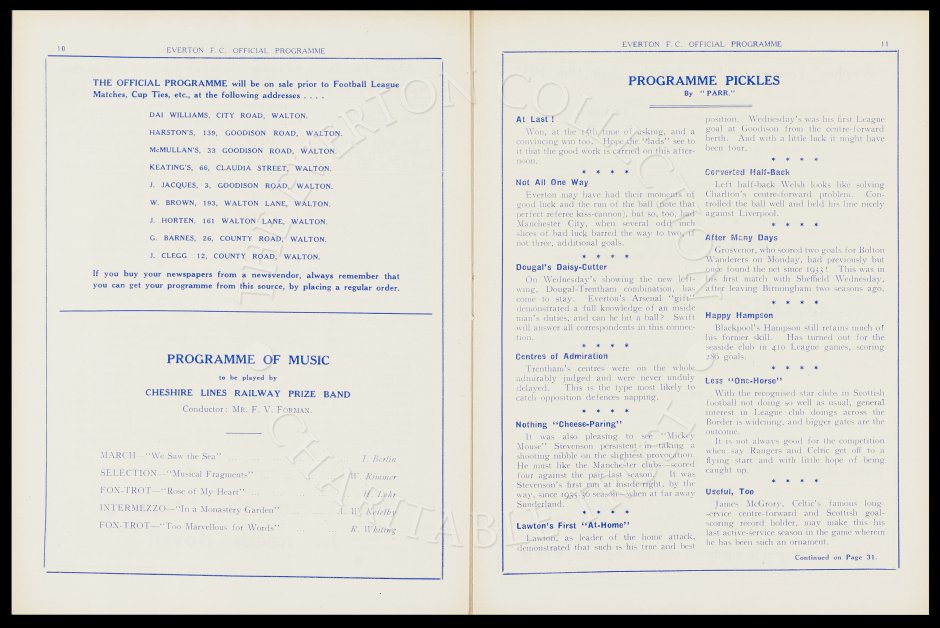 10
EVERTON F.C. OFFICIAL PROGRAMME
THE OFFICIAL PROGRAMME will be on sale prior to Football League
Matches, Cup Ties, etc., at the following addresses . . . .
DAI WILLIAMS, CITY ROAD, WALTON.
HARSTON'S, 139, GOODISON ROAD, WALTON.
McMULLAN'S, 33 GOODISON ROAD, WALTON.
KEATING'S, 66, CLAUDIA STREET, WALTON.
J. JACQUES, 3, GOODISON ROAD, WALTON.
W. BROWN, 193, WALTON LANE, WALTON.
J. HORTEN, 161 WALTON LANE, WALTON.
G. BARNES, 26, COUNTY ROAD, WALTON.
J. CLEGG 12, COUNTY ROAD, WALTON.
If you buy your newspapers from a newsvendor, always remember that
you can get your programme from this source, by placing a regular order.
PROGRAMME OF MUSIC
to be played by
CHESHIRE LINES RAILWAY PRIZE BAND
Conductor: MR. F. V. FORMAN.
MARCH—"We Saw the Sea" I. Berlin
SELECTION—"Musical Fragments" W. Rimmer
FOX-TROT—"Rose of My Heart" ... H. Lohr
INTERMEZZO—"In a Monastery Garden" A. W. Ketelby
FOX-TROT—"Too Marvellous for Words" ... R. Whiting
EVERTON F.C. OFFICIAL PROGRAMME
11
PROGRAMME PICKLES
By "PARR."
At Last!
Won, at the 18th time of asking, and a
convincing win too. Hope the "lads" see to
it that the good work is carried on this after-
noon.
* * * *
Not All One Way
Everton may have had their moments of
good luck and the run of the ball (note that
perfect referee kiss-cannon), but so, too, had
Manchester City, when several odd inch
slices of bad luck barred the way to two, if
not three, additional goals.
* * * *
Dougal's Daisy-Cutter
On Wednesday's showing the new left-
wing, Dougal-Trentham combination, has
come to stay. Everton's Arsenal "gift"
demonstrated a full knowledge of an inside
man's duties, and can he hit a ball? Swift
will answer all correspondents in this connec-
tion.
* * * *
Centres of Admiration
Trentham's centres were on the whole
admirably judged and were never unduly
delayed. This is the type most likely to
catch opposition defences napping.
* * * *
Nothing "Cheese-Paring"
It was also pleasing to see "Mickey
Mouse" Stevenson persistent in taking a
shooting nibble on the slightest provocation.
He must like the Manchester clubs—scored
four against the pair last season. It was
Stevenson's first run at inside-right, by the
way, since 1935-36 season—when at far away
Sunderland.
* * * *
Lawton's First "At-Home"
Lawton, as leader of the home attack,
demonstrated that such is his true and best
position. Wednesday's was his first League
goal at Goodison from the centre-forward
berth. And with a little luck it might have
been four.
* * * *
Converted Half-Back
Left half-back Welsh looks like solving
Charlton's centre-forward problem. Con-
trolled the ball well and held his line nicely
against Liverpool.
* * * *
After Many Days
Grosvenor, who scored two goals for Bolton
Wanderers on Monday, had previously but
once found the net since 1933! This was in
his first match with Sheffield Wednesday,
after leaving Birmingham two seasons ago.
* * * *
Happy Hampson
Blackpool's Hampson still retains much of
his former skill. Has turned out for the
seaside club in 410 League games, scoring
286 goals.
* * * *
Less "One-Horse"
With the recognised star clubs in Scottish
football not doing so well as usual, general
interest in League club doings across the
Border is widening, and bigger gates are the
outcome.
It is not always good for the competition
when say Rangers and Celtic get off to a
flying start and with little hope of being
caught up.
* * * *
Useful, Too
James McGrory, Celtic's famous long-
service centre-forward and Scottish goal-
scoring record holder, may make this his
last active-service season in the game wherein
he has been such an ornament.
Continued on Page 31.
THE EVERTON COLLECTION CHARITABLE TRUST